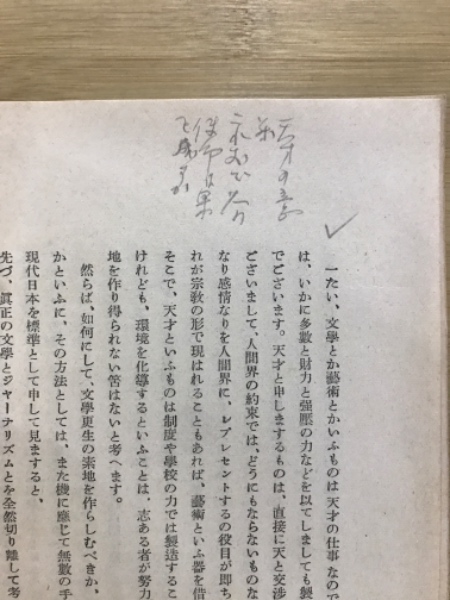 天才の意
一たい、文學とか藝術とかいふものは天才の仕事なので
は、いかに多數と財力と强壓の力などを以てしましても製
でございます。天才と申しますものは、直接に天と交渉
ございまして、人間界の約束では、どうにもならないものな
なり感情なりを人間界に、レプレセントするの役目が卽ち
れが宗敎の形で現はれることもあれば、藝術といふ器を借
そこで、天才といふものは制度や學校の力では製造するこ
けれども、環境を化導するといふことは、志ある者が努力
地を作り得られない筈はないと考へます。
然らば、如何にして、文學更生の素地を作らしむべきか、
かといふに、その方法としては、また機に應じて無數の手
現代日本を標準として申して見ますると、
先づ、眞正の文學とジャーナリズムとを全然切り離して考